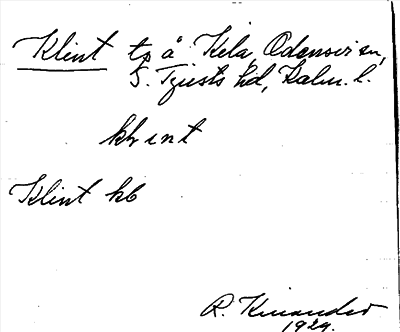 Klint tp å Kila, Odensvi sn,
S. Tjusts hd, Kalm. l.
klint
Klint kb
R. Kinander
1929.